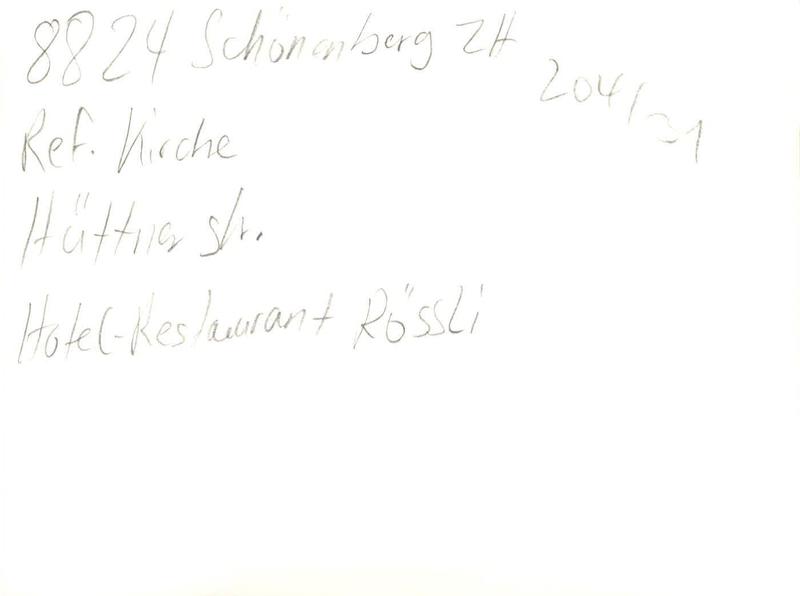 8824 Schönenberg ZH
204/31
Ref. Kirche
Hüttner str.
Hotel-Restaurant Rössli